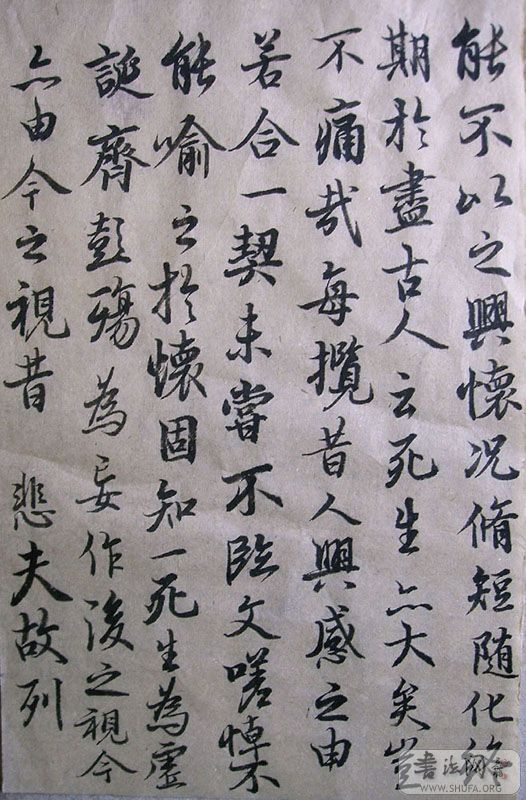 能不以之興懷况脩短随化終
期於盡古人云死生亦大矣豈
不痛哉每攬昔人興感之由
若合一契未嘗不臨文嗟悼不
能喻之於懷固知一死生為虛
誕齊彭殤為妄作後之視今
亦由今之視昔 悲夫故列
書法网
WWW.SHUFA.ORG